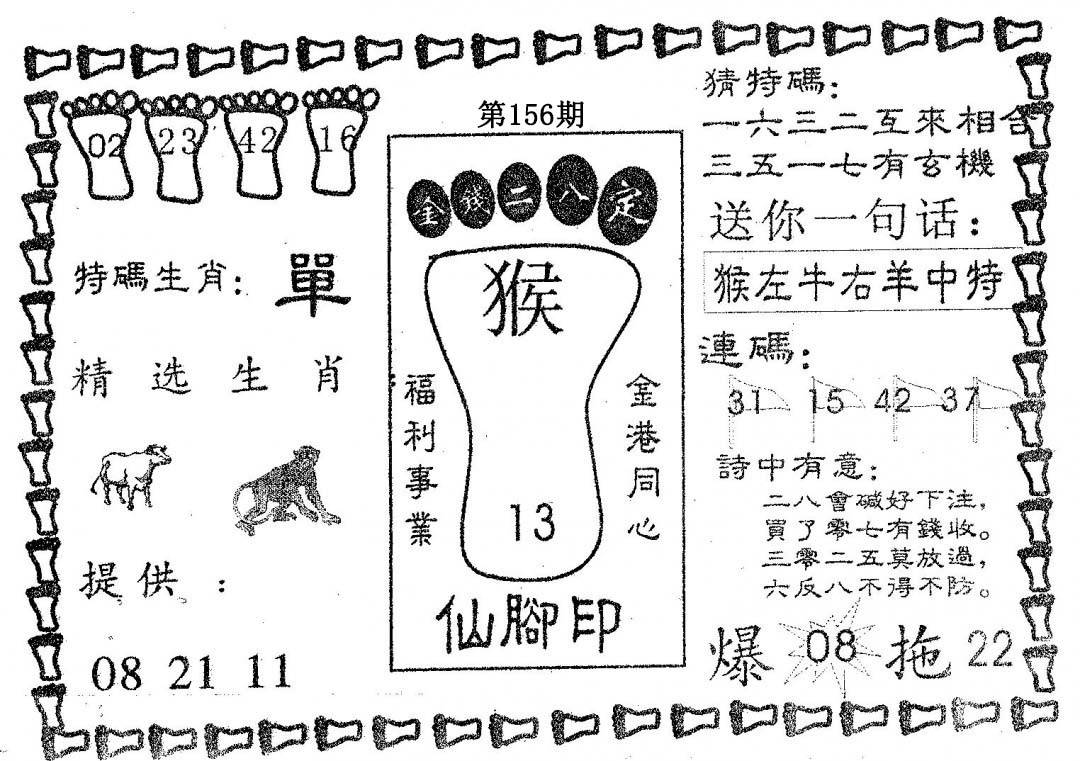 02 23 42 16
特碼生肖：單
精选生肖
提供：
08 21 11
第156期
金錢二八定
猴
13
福利事業
金港同心
仙腳印
猜特碼：
一六三二互來相合
三五一七有玄機
送你一句话：
猴左牛右羊中特
連碼：
31 15 42 37
詩中有意：
二八會碱好下注，
買了零七有錢收。
三零二五莫放過，
六反八不得不防。
爆 08 拖 22